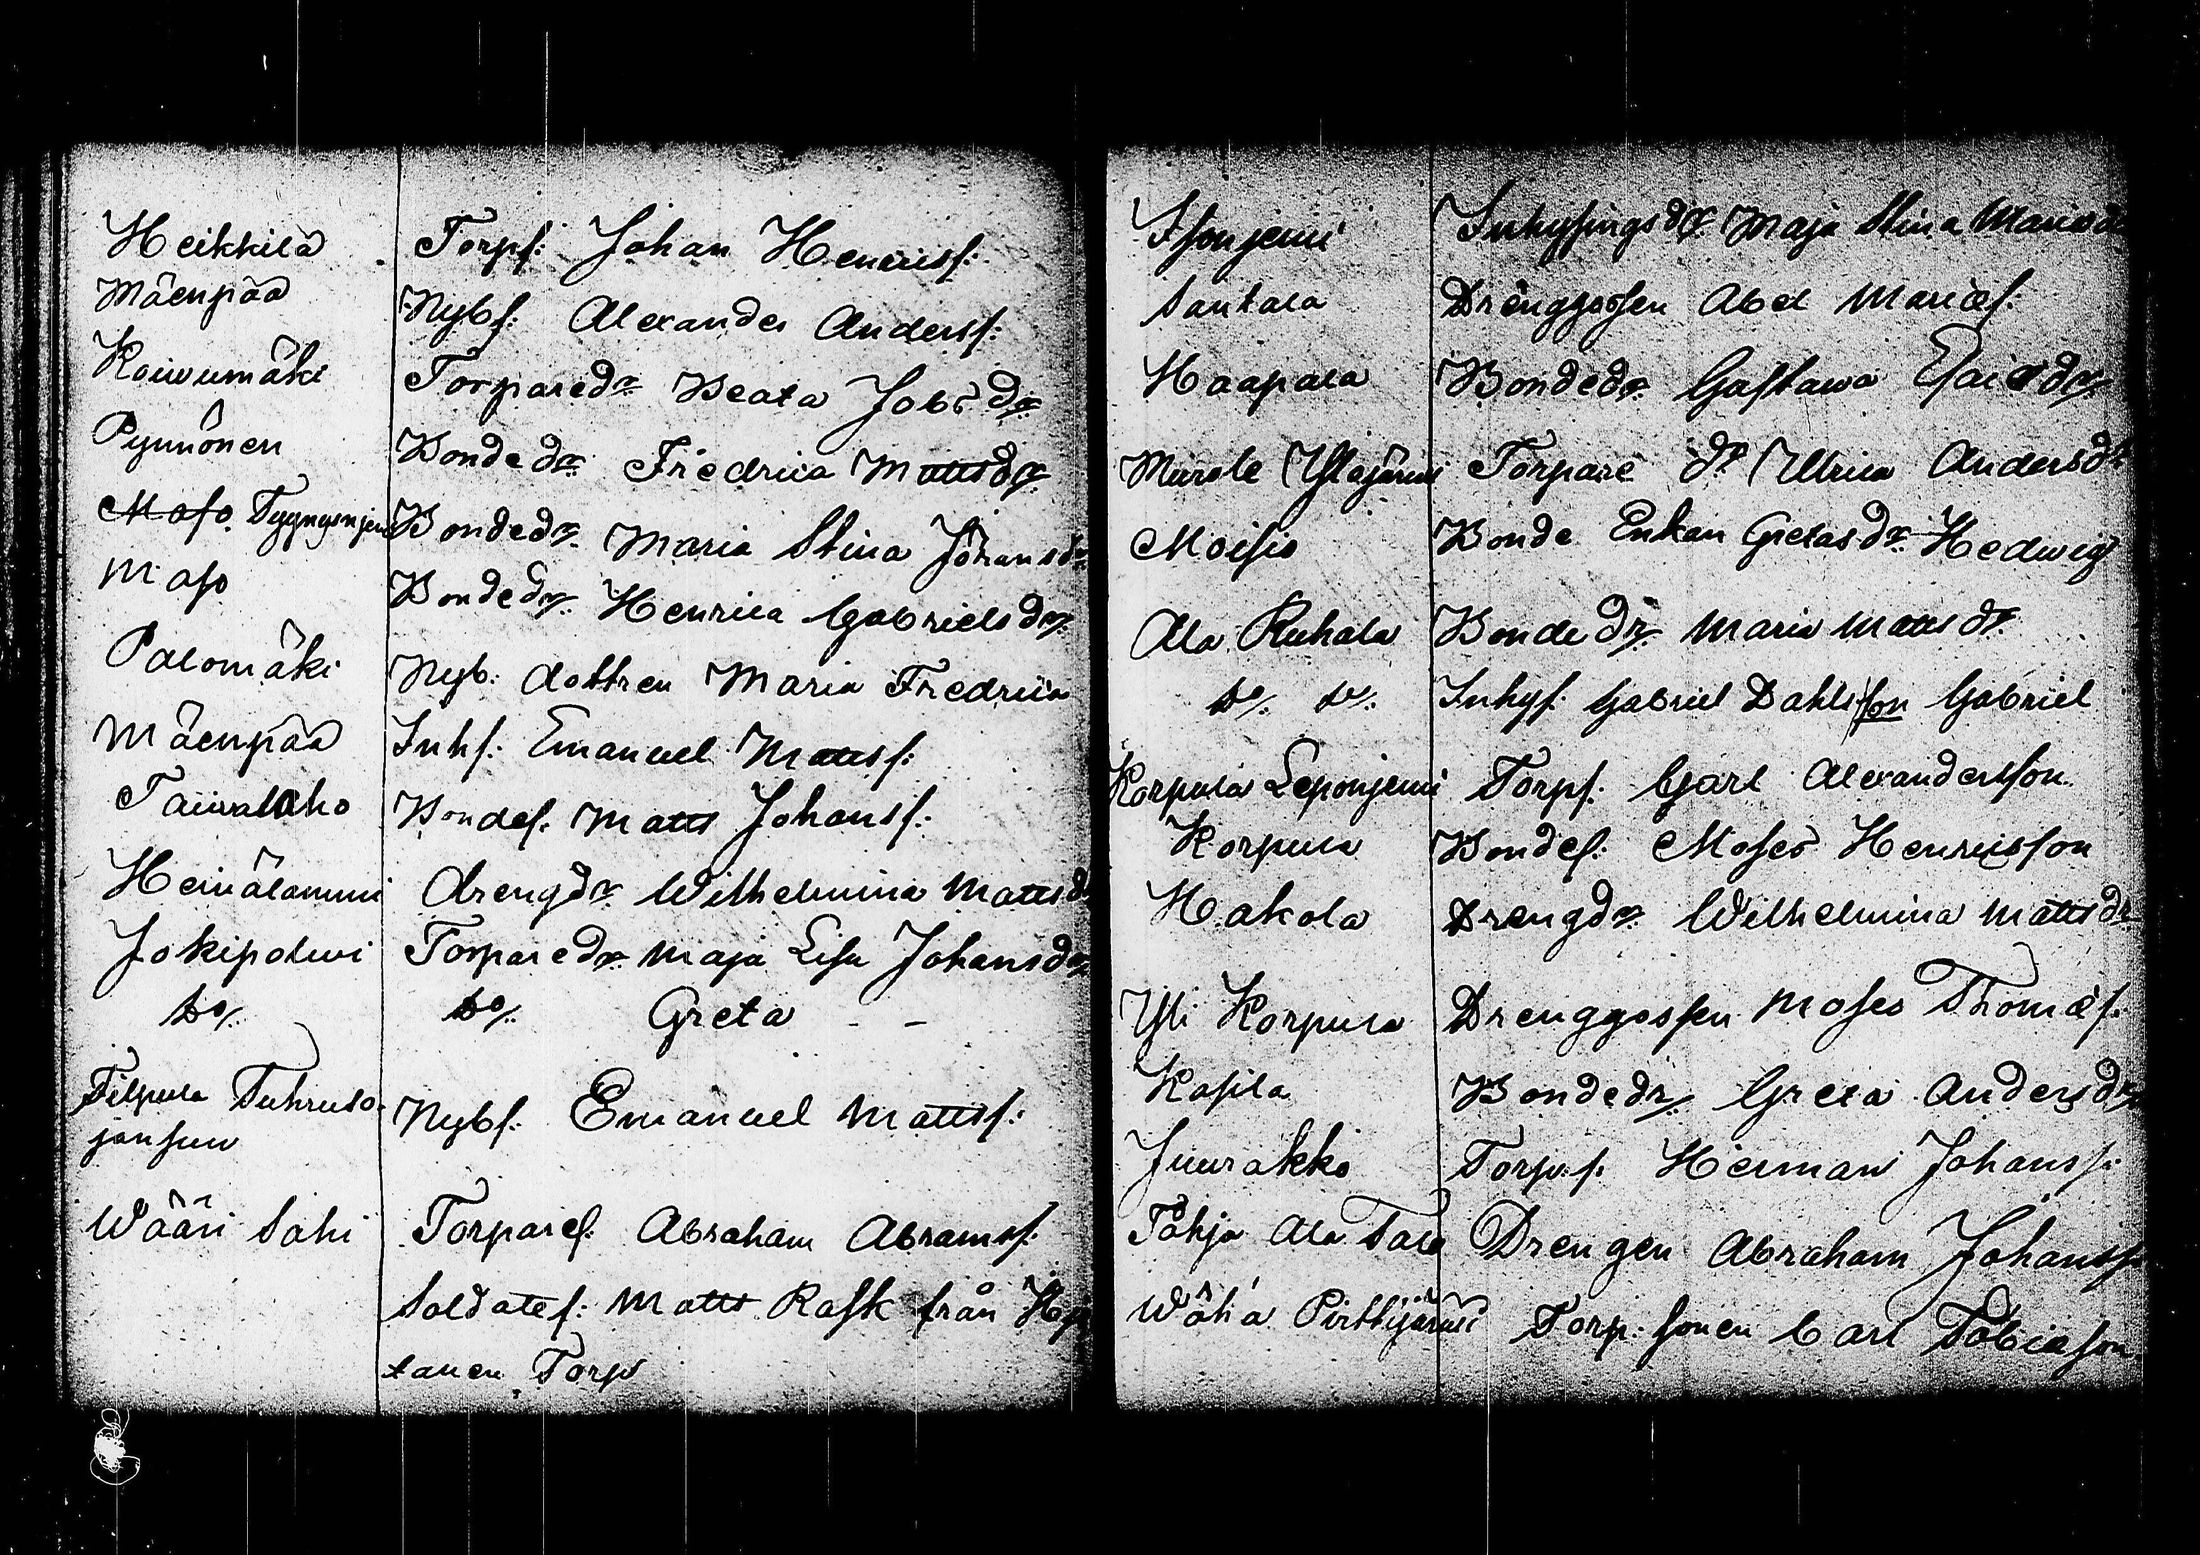 Heikkilä Torps: Johan Henrikss:
Mäenpää Nybs: Alexander Anderss:
Koiwumäki Torparedr Beata Jobsdr
Pynnönen Bondedr Fredrica Mattsdr
Maso Bondedr Maria Stina Johansdr
Maso Bondedr Henrica Gabrielsdr
Palomäki Nyb. dottren Maria Fredrica
Mäenpää Inhs: Emanuel Mattss:
Taiwalaho Bondes: Matts Johanss:
Heinälammi drengdr Wilhelmina Mattsd
Jokipolwi Torparedr Maja Lisa Johansdr
Do/. Do/. Greta - -
Filpula
Nybs: Emanuel Mattss:
Wääri Sahi Torpares: Abraham Abramss:
Soldates: Matts Rask från
tanen Torp
Inhysingsdr Maja Stina Mariæd
Santala Drenggossen Abel Mariæs:
Haapala Bondedr Gustawa Esaiædr
Murole Torpare dr Ulrica Andersdr
Moisio Bonde Enkan Gretas dr Hedwig
Ala Ruhala Bonde dr Maria Mattsdr
Do/. Do/. Inhys: Gabriel Dahls son Gabriel
Korpula Leponjemi Torps: Carl Alexandersson
Korpula Bondes: Moses Henriksson
Hakola Drengdr Wilhelmina Mattsdr
Yli Korpula Drenggossen Moses Thomæs:
Kasila Bondedr Greta Andersdr
Juurakko Torps: Herman Johanss:
Pohja Ala Drengen Abraham Johanss
Wähä Pirttijärwi Torp: sonen Carl Tobiæson